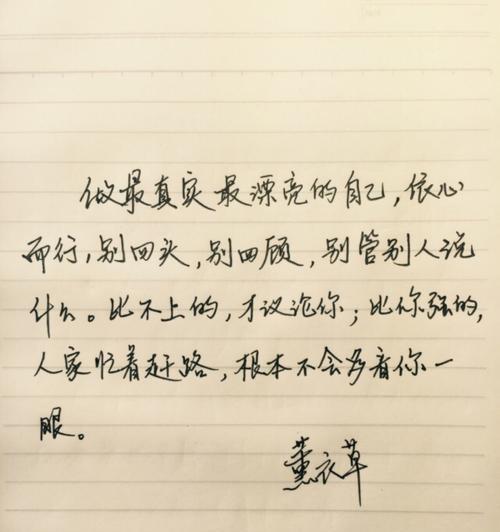 做最真实最漂亮的自己，依心
而行，别回头，别四顾，别管别人说
什么。比不上的，才议论你；比你强的，
人家忙着赶路，根本不会多看你一
眼。
薰衣草